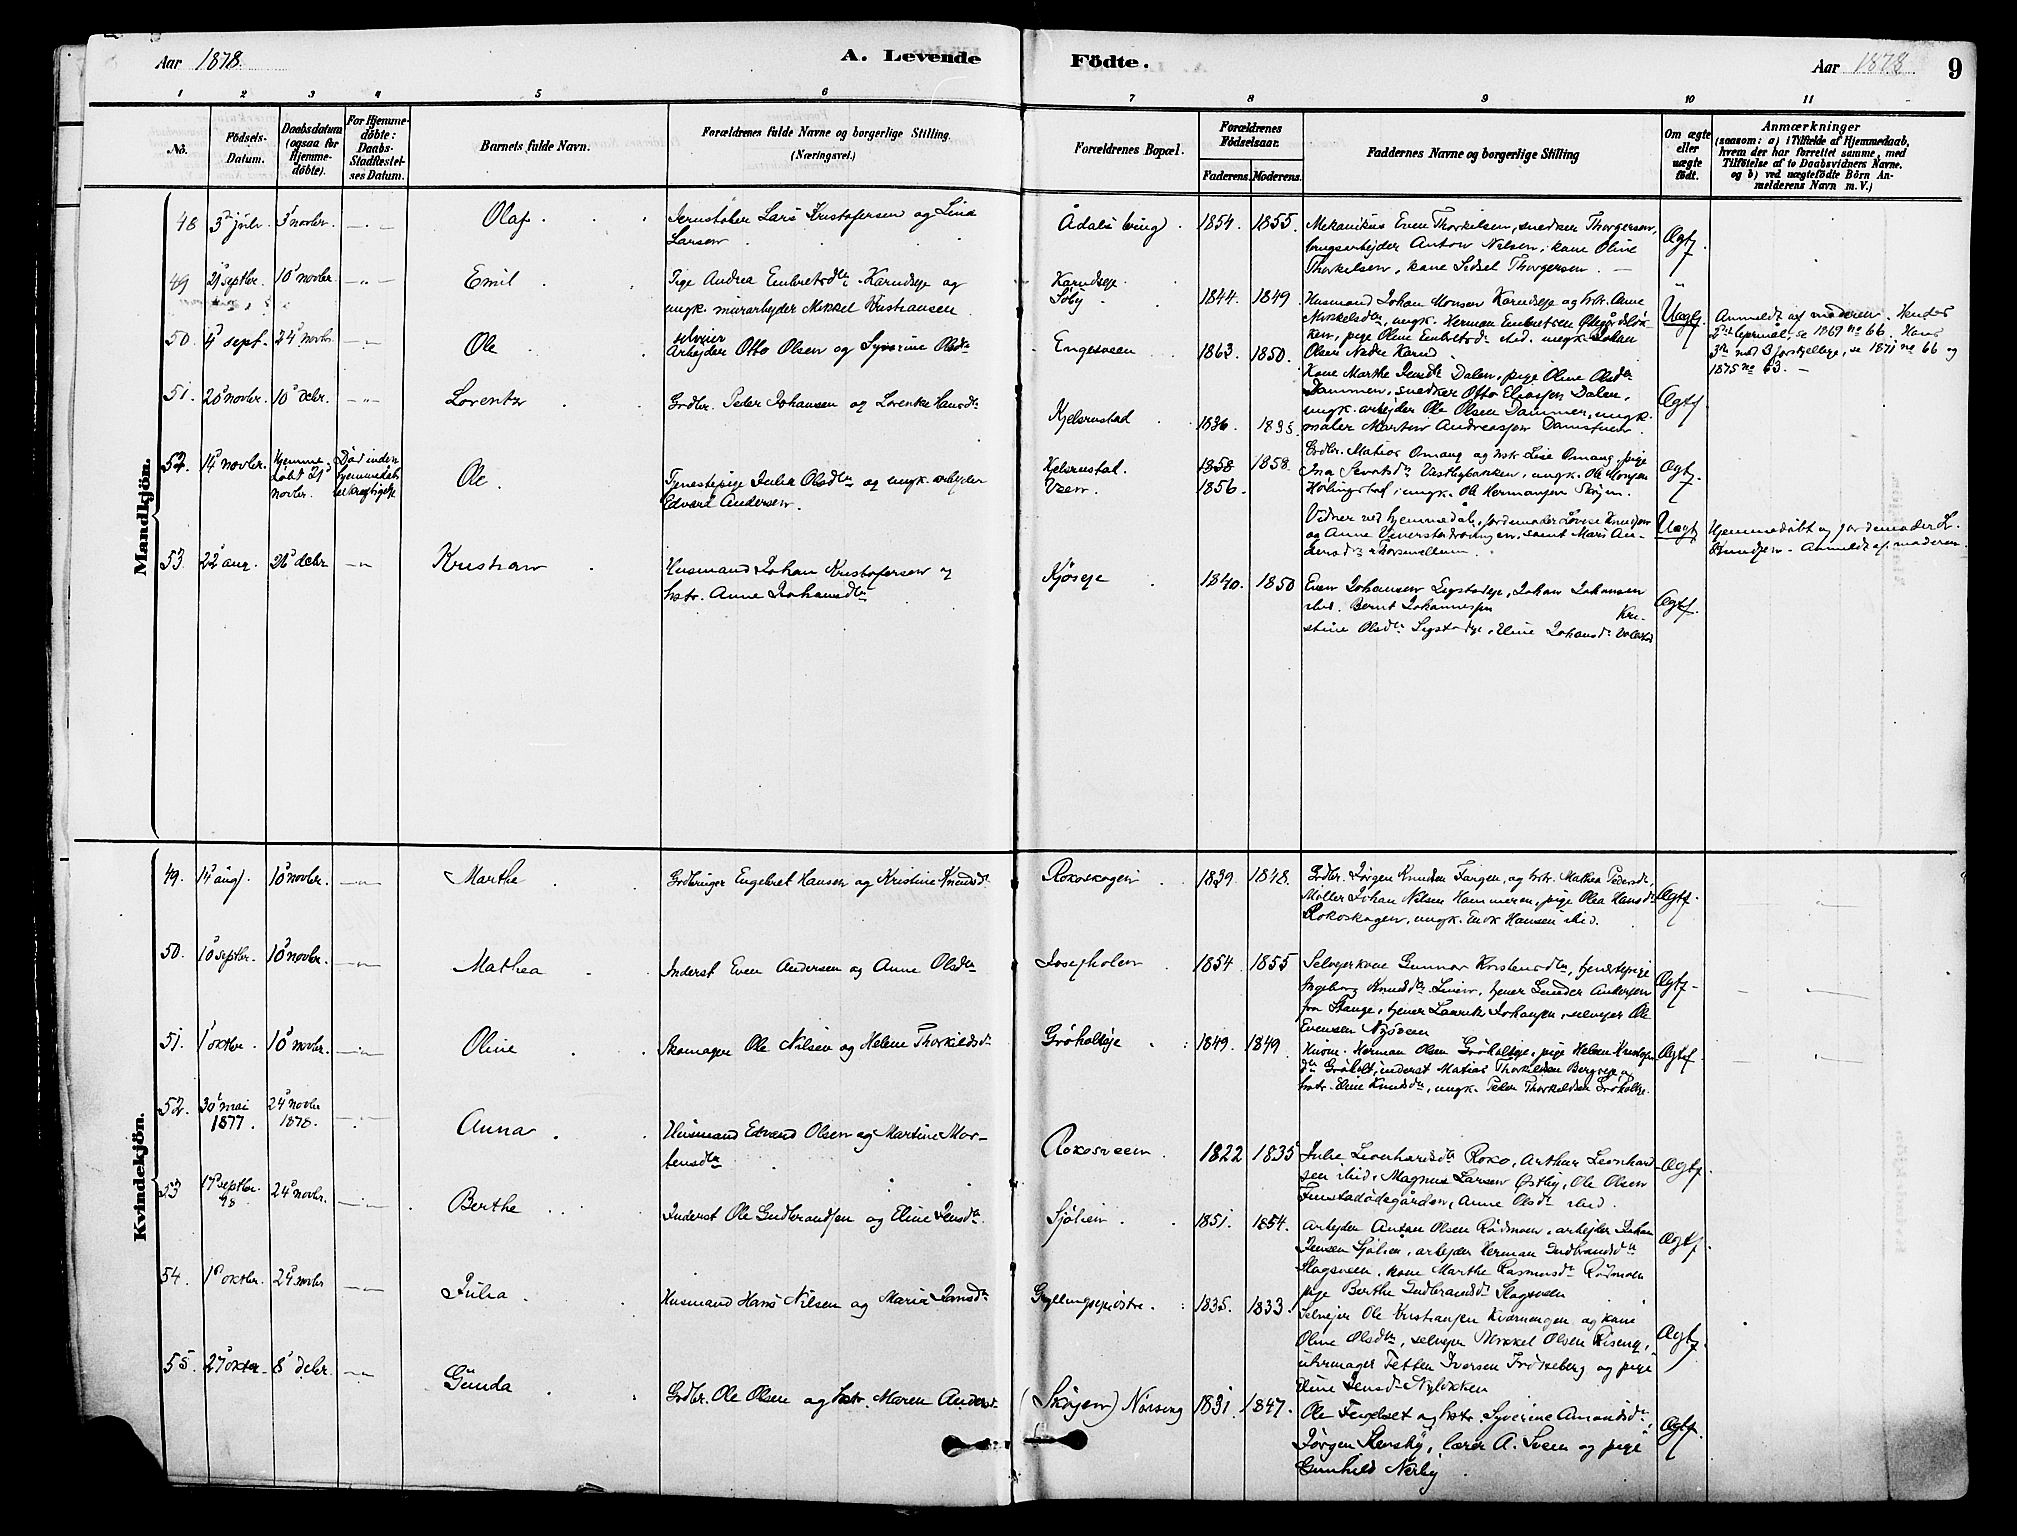 Aar 1878.
A. Levende
Födte.
Aar 1878.
9
1 2 3 4 5 6 7 8 9 10 11
No.
Födsels-
Datum.
Daabsdatum
(ogsaa for
Hjemme-
döbte).
For Hjemme-
döbte:
Daabs-
Stadfæstel-
ses Datum.
Barnets fulde Navn.
Forældrenes fulde Navne og borgerlige Stilling.
(Næringsvei.)
Forældrenes Bopæl.
Forældrenes
Födselsaar.
Faderens. Moderens.
Faddernes Navne og borgerlige Stilling
Om ægte
eller
uægte
födt.
Anmærkninger
(saasom: a) i Tilfælde af Hjemmedaab,
hvem der har forrettet samme, med
Tilföielse af to Daabsvidners Navne.
og b) ved uægtefödte Börn An-
melderens Navn m. V.)
Mandkjön.
48 3 juli. 3 novbr. Olaf.
Jernstøber Lars Kristofersen og Lina
Larsen
Ådals brug. 1854. 1855.
Mekanikus Even Thorkilsen, snedker Thorgersen,
brugsarbejder Anton Nilsen, kone Oline
Thorkelsen, kone Sidsel Thorgersen.
Ægtf.
49 21 septbr. 10 novbr. Emil
Pige Andrea Embretsdtr. Karudseje og
ungk. murarbejder Mikkel Kristiansen.
Karudseje.
Søby
1844. 1849.
Husmand Johan Monsen Karudseje og hstr. Anne
Mikkelsdtr, ungk. Herman Embretsen Ødegårdsløk-
ken, pige Oline Embretsdtr. ibid. ungk. Johan
Olsen Nedre Karud.
Uægtf.
Anmeldt af moderen. Hendes
2det lejermål, se 1869 no 66. Hans
3die med 3 forskjellige, se 1871 no 66 og
1875 no 63.
50. 4 sept. 24 novbr. Ole
Arbejder Otto Olsen og Syverine Olsdtr
Engesveen 1863. 1850.
Kone Marthe Jensdtr Dalen, pige Oline Olsdtr
Dammen, snedker Otto Eliassen Dalen,
ungk. arbejder Ole Olsen Dammen, ungk.
maler Martin Andreassen Damstuen.
Ægtf.
51. 20 novbr. 10 debr. Lorents
Grdbr. Peder Johansen og Lorentse Hansdtr
Kjelsrustad 1836. 1835.
Grdbr. Matias Ormang og hstr. Lise Ormang, pige
Ina Sevatsdtr Vestbybakken, ungk. Ole Monsen
Hørlingstad, ungk. Ole Hermansen Skøjen.
Ægtf.
52. 14 novbr. Hjemme-
døbt 21
novbr.
Død inden
hjemmedåb
bekræftigelse
Ole.
Tjenestepige Julia Olsdtr og ungk. arbejder
Edvard Andersen.
Kjelsrustad. 1858. 1858.
Veen. 1856.
Vidner ved hjemmedåb, jordemoder Lovise Knudsen
og Anne Evenstadvangen, samt Mari An-
dersdtr Thorsmellem.
Uægtf
Hjemmedøbt af jordemoder L.
Knudsen. Anmeldt af moderen.
53. 22 aug. 26 debr. Kristian
Husmand Johan Kristofersen og
hstr. Anne Johansdtr
Kjøseje 1840. 1850
Even Johansen Segstadeje, Johan Johansen
ibid. Bernt Johannessen Kri-
stine Olsdtr Segstadeje, Eline Johansdtr
Ægtf.
Kvindekjön.
49. 14 aug. 10 novbr. Marthe
Grdbruger Engebret Hansen og Kristine Knudsdtr
Rokoskogen 1839. 1848.
Grdbr. Jørgen Knudsen Fargen, og hstr. Mathea Pedersdtr,
Møller Johan Nilsen Hammeren, pige Olea Hansdtr
Rokoskogen, ungk. Enok Hansen ibid.
Ægtf.
50. 10 septbr. 10 novbr. Mathea
Inderst Even Andersen og Anne Olsdtr
Josefholen 1854. 1855
Selvejerkone Gunnor Kristensdtr, tjenestepige
Ingeborg Knudsdtr Linien, tjener Gunder Andersen
fra Stange, tjener Laurits Johansen, selvejer Ole
Evensen Nysveen
Ægtf.
51. 1 oktbr. 10 novbr. Oline
Skomager Ole Nilsen og Helene Thorkildsdtr
Grøholteje 1849. 1849.
Husm. Herman Olsen Grøholteje, pige Helene Kristofers-
dtr Grøholt, inderst Matias Thorkildsen Bergseje og
hstr. Eline Knudsdtr, ungk. Peter Thorkildsen Grøholteje.
Ægtf
52. 30 mai
1877.
24 novbr
1878.
Anna
Husmand Edvard Olsen og Martine Mor-
tensdtr
Rokosveen. 1822 1835
Julie Leonhardsdtr Roko, Arthur Leonhard-
sen ibid, Magnus Larsen Østby, Ole Olsen
Finstadødegården, Anne Olsdtr ibid.
Ægtf.
53 17 septbr.
78
24 novbr. Berthe
Inderst Ole Gudbrandsen og Eline Jensdtr.
Sjølien. 1851. 1854.
Arbejder Anton Olsen Rødsmoen, arbejder Johan
Jensen Sjølien, arbejder Herman Gudbrandsdtr
Slagsveen, kone Marthe Rasmusdtr Rødsmoen
pige Berthe Gudbrandsdtr Slagsveen
Ægtf.
54. 10 oktbr. 24 novbr Julia.
Husmand Hans Nilsen og Maria Hansdtr
Gyllingsejeøstre. 1835. 1833.
Selvejer Ole Kristiansen Kværningen og kone
Oline Olsdtr, selvejer Mikkel Olsen Riseng,
uhrmager Petter Iversen Frøkeberg og pige
Eline Jensdtr Nyløkken
Ægtf.
55 27 oktbr 8 debr. Gunda
Grdbr. Ole Olsen og hstr. Maren Andersd.
(Skøjen) Norseng 1831. 1847.
Ole Fengelset og hstr. Syverine Amundsdtr,
Jørgen Stensby, lærer A. Sveen og pige
Gunhild Nerby
Ægtf.